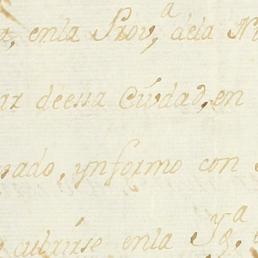 enla Prov,ª dela
deessa Ciudad, en
ynformo con
cubrirse enla Yg,ª